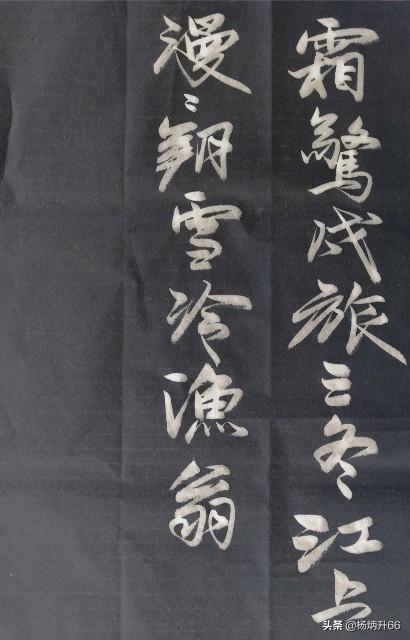 霜驚戍旅三冬江上
漫〻朔雪冷漁翁
头条 @杨炳升66